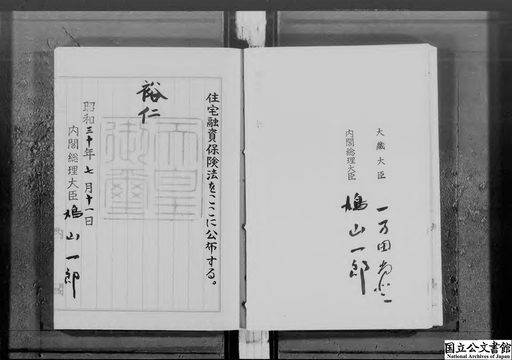 大藏大臣 一万田尚登
内閣総理大臣 鳩山一郎
住宅融資保険法をここに公布する。
裕仁
天皇御璽
昭和三十年七月十一日
内閣総理大臣 鳩山一郎
国立公文書館
National Archives of Japan